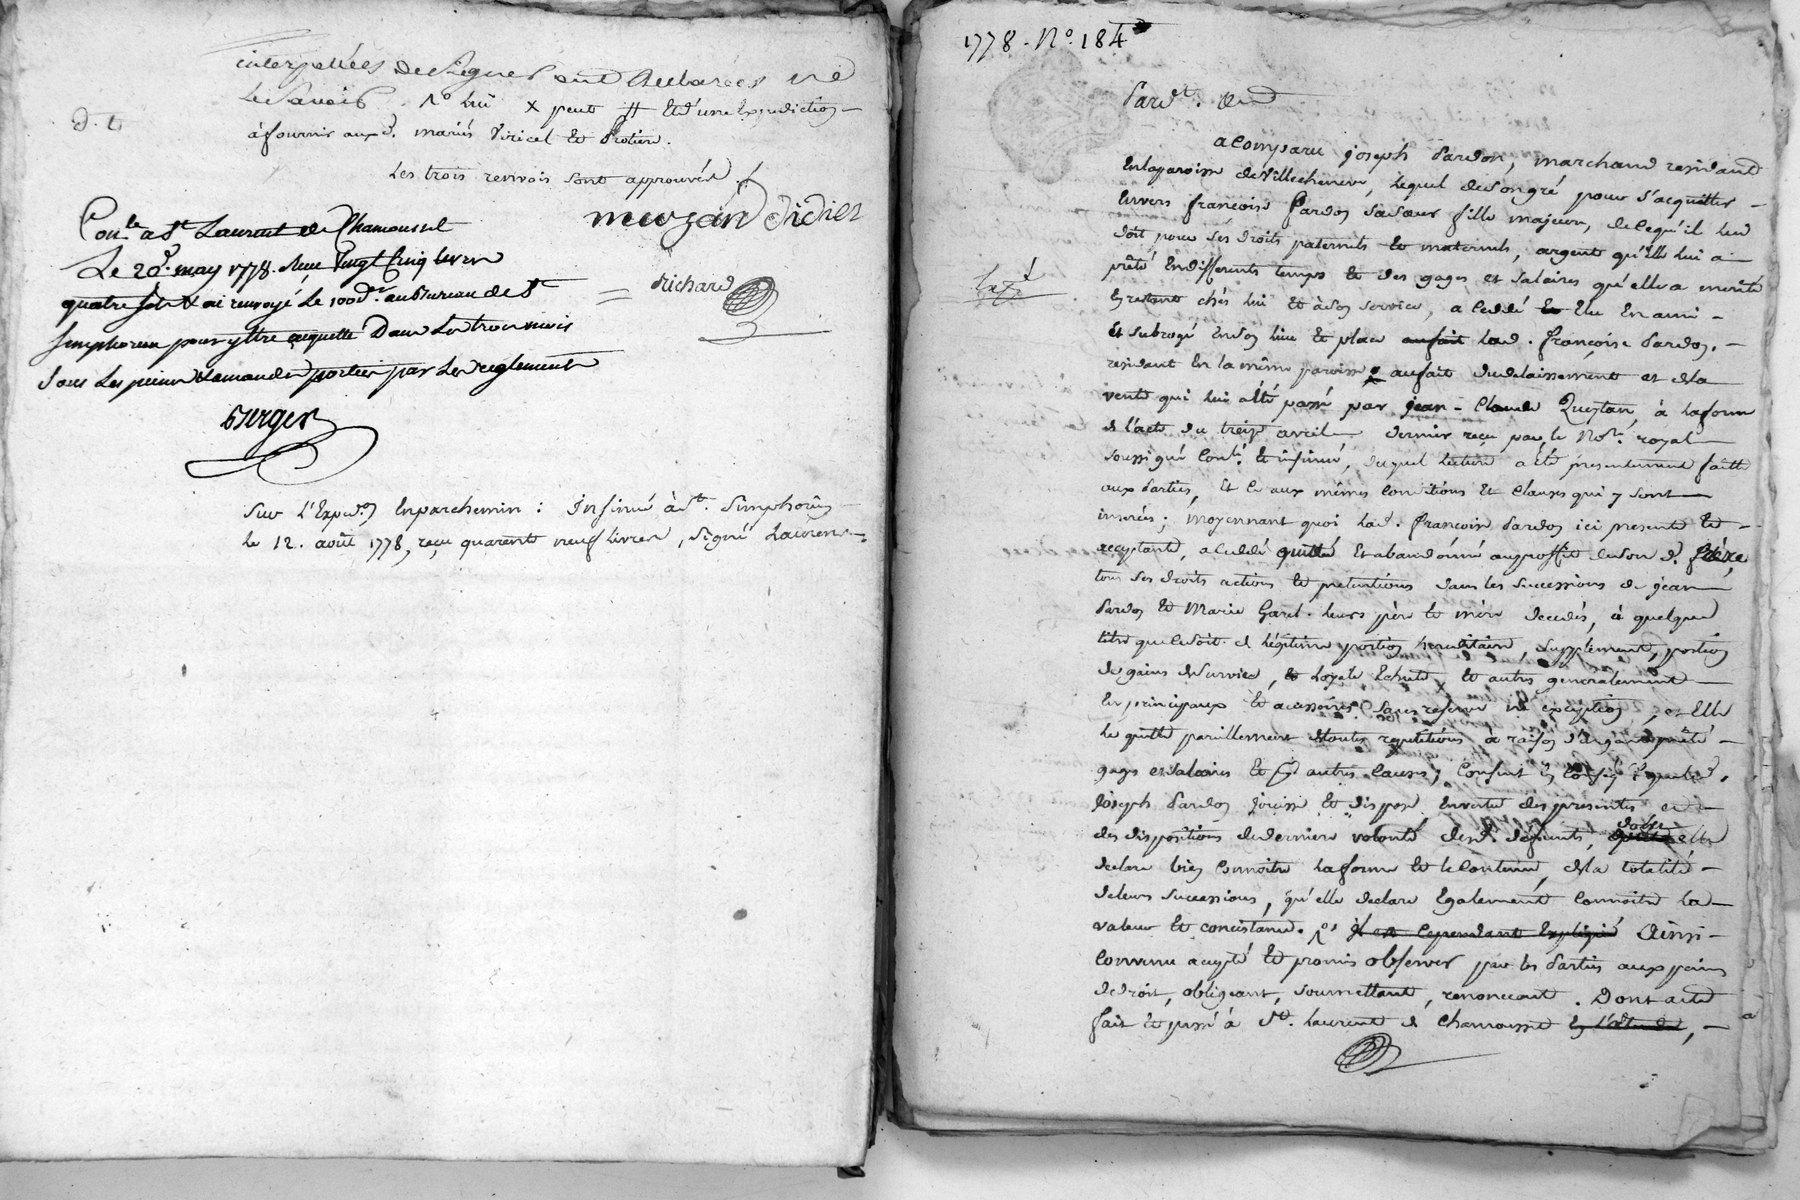 interpellées de signer ont declarées ne
le savoir. Rº lui x peut # et d'une expediction
d. t
à fournir aux d. mariés Viricel et
Les trois renvois sont approuvés
meuzan Didier
Richard
Con.le a St Laurent de Chamousset
Le 20.e may 1778. Reçu vingt cinq livres
quatre sols et ai renvoyé le 100.d.er au Bureau de St
Simphorien pour y être aquitté Dans les trois mois
sous les peines et amandes portées par les reglements
Burger
Sur l'Exped.on En parchemin : Insinué à St. Simphorien
le 12. août 1778, reçu quarente neuf livres, signé Laurens.
1778. Nº. 184
Pard.t.
a Comparu joseph Pardon, marchand residant
En la paroisse de Villecheneve, lequel de son gré pour s'acquitter
Envers françoise Pardon sa sœur fille majeure, de ce qu'il leur
doit pour ses droits paternels et maternels, argent qu'elle lui a
prêté En differents temps et des gages et salaires qu'elle a merité
En restant chés lui et à son service, a Cedé et Elu En ami
et subrogé En son lieu et place au fait lad. françoise Pardon,
residant En la même paroisse au fait du delaissement et de la
vente qui lui a été passé par jean-Claude à la forme
de l'acte du treize avril dernier reçu par le No.re royal
soussigné Conl.é et insinué, duquel lecture a été presentement faitte
aux parties, Et ce aux mêmes Conditions Et Clauses qui y sont
inserées ; moyennant quoi lad. françoise Pardon ici presente et
acceptante, a Cedé quitté Et abandonné au proffit de son d. frère
tous ses droits actions et pretentions dans les successions de jean
Pardon et Marie Garel leurs père et mère decedés, à quelque
titre que ce soit de légitime portion hereditaire, supplement, portion
de gains de survies, et hoyrie Echute et autres generalement
En principaux et accessoires sans reserve ni exception, et Elle
le quitte pareillement de toutes repetitions à raison d'argent prêté
gages et salaires et autres Causes ; Consent En Conséq.ce que led.
joseph Pardon jouisse et dispose En vertu des presentes et
des dispositions de derniere volonté desd. defunts, dont elle
declare bien Connoitre la forme et le Contenu, de la totalité
de leurs successions, qu'elle declare Egalement Connoitre la
valeur et concistance. Rº il est cependant Expliqué Ainsi
Convenu accepté et promis observer par les Parties aux peines
de droit, obligeant, soumettant, renonceant. Dont acte
fait et passé à St. Laurent de Chamousset En l'étude,